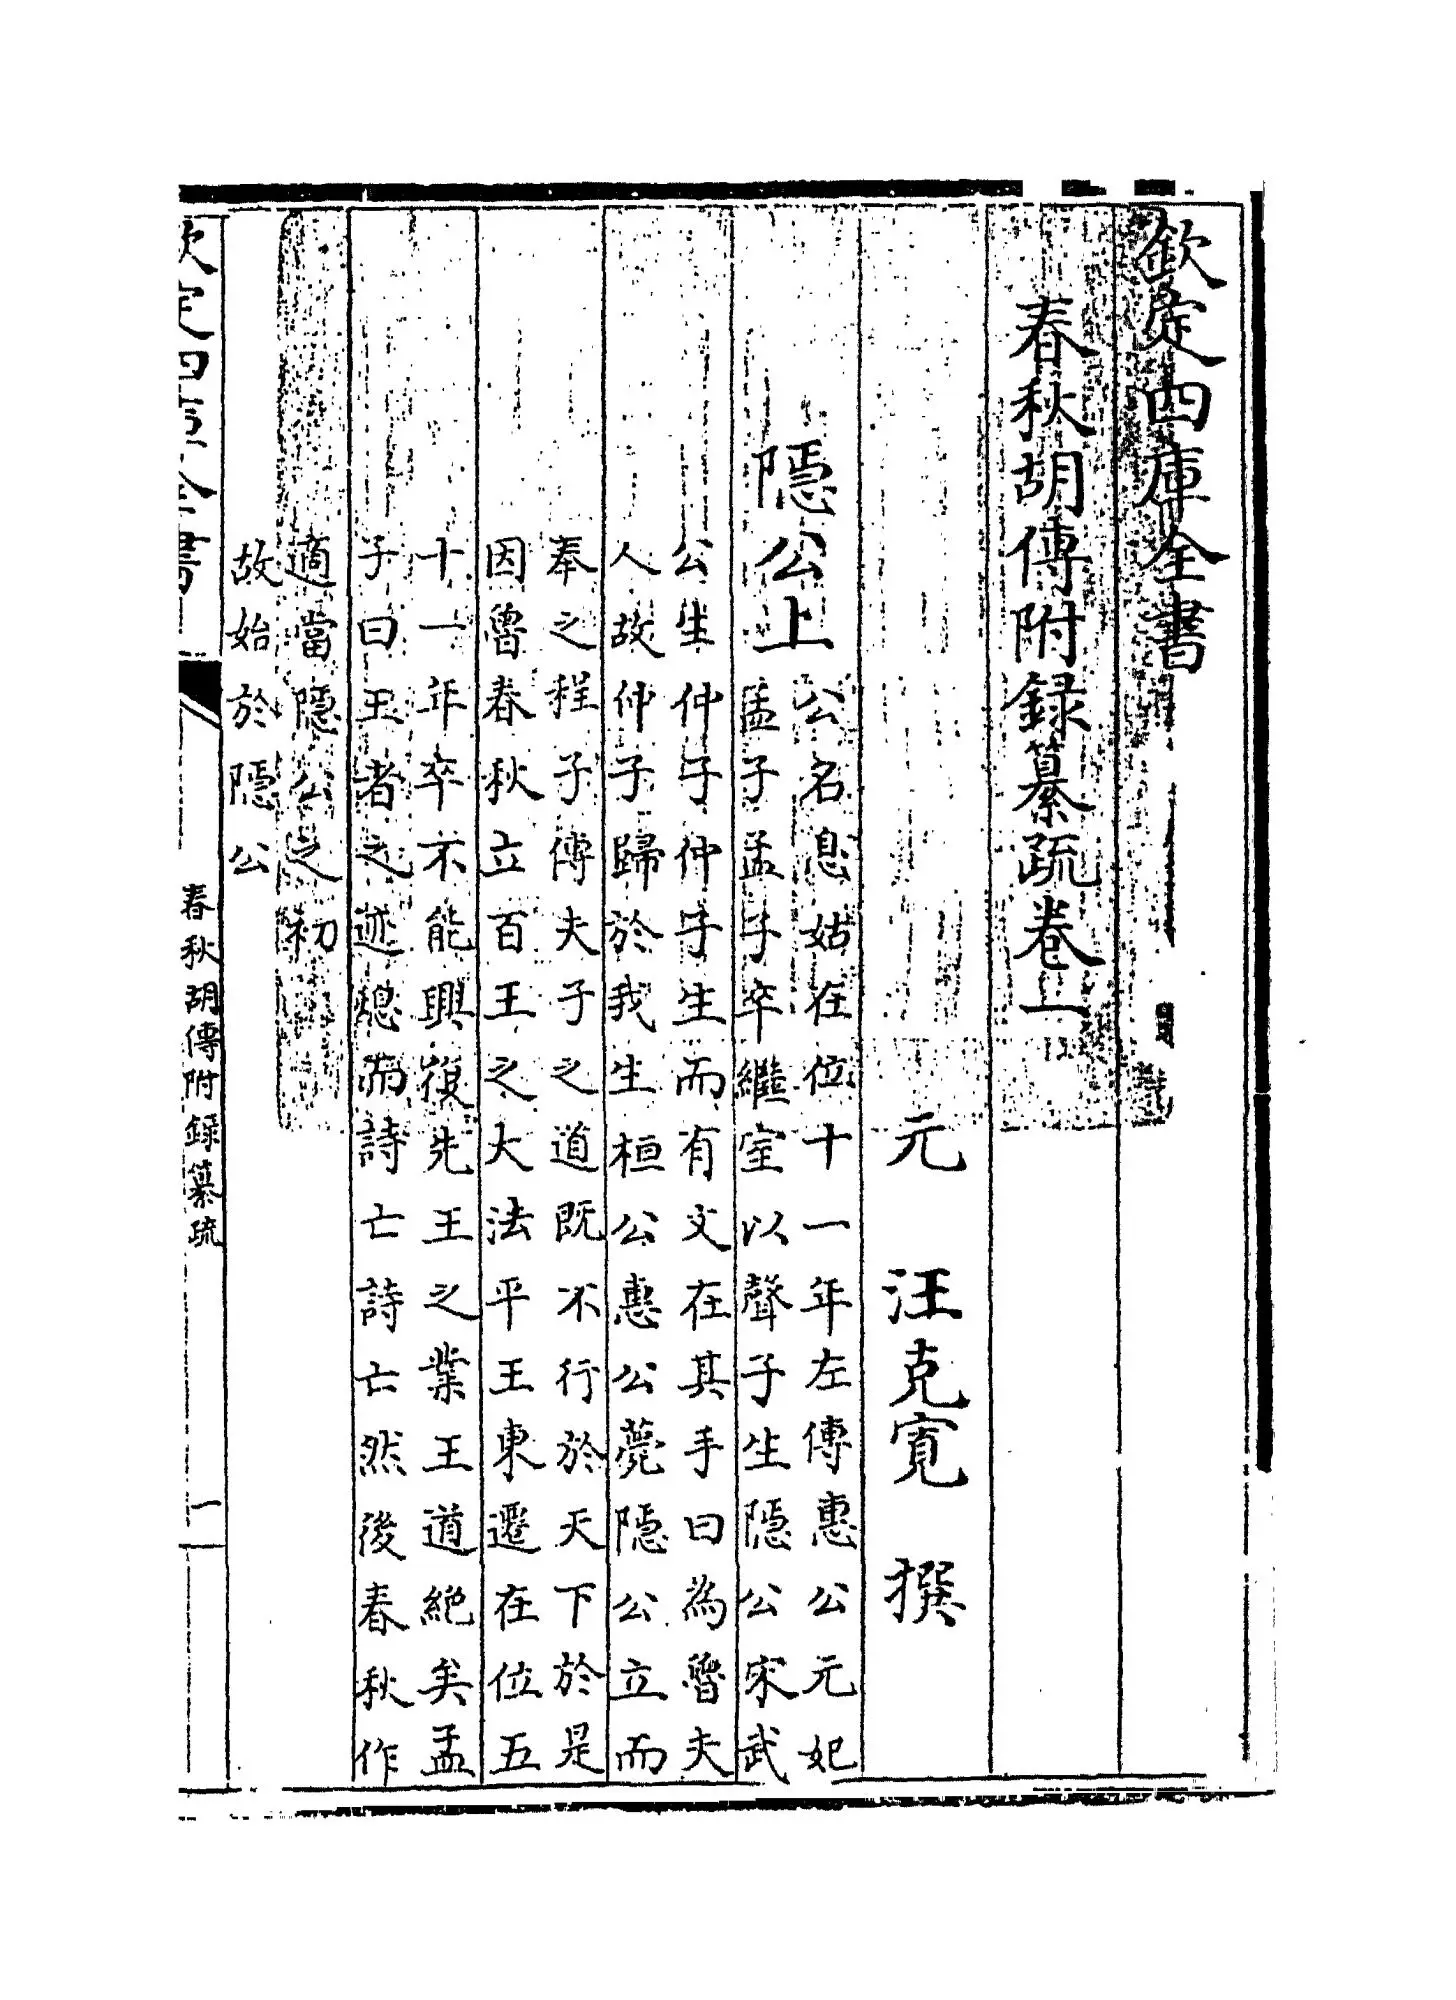 欽定四庫全書
春秋胡傳附録纂疏卷一
元　汪克寛　撰
隱公上
公名息姑在位十一年左傳惠公元妃
孟子孟子卒繼室以聲子生隱公宋武
公生仲子仲子生而有文在其手曰為魯夫
人故仲子歸於我生桓公惠公薨隱公立而
奉之程子傳夫子之道既不行於天下於是
因魯春秋立百王之大法平王東遷在位五
十一年卒不能興復先王之業王道絶矣孟
子曰王者之迹熄而詩亡詩亡然後春秋作
適當隱公之初
故始於隱公
欽定四庫全書
春秋胡傳附録纂疏
一